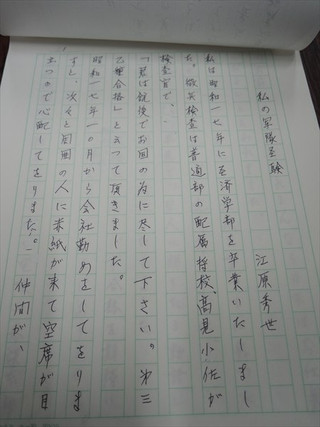 私の軍隊至験
江原秀世
私は昭和一七年に至済学部を卒業いたしまし
た。徴兵検査は普通部の配属将校、高見小佐が
検査官で、
「君は銃後でお国の為に尽して下さい。第三
乙種合格」と云って頂きました。
昭和一七年一〇月から会社勤めをしてをりま
すと、次々と周囲の人に赤紙が来て空席が目
立つので心配してをりました。仲間が、